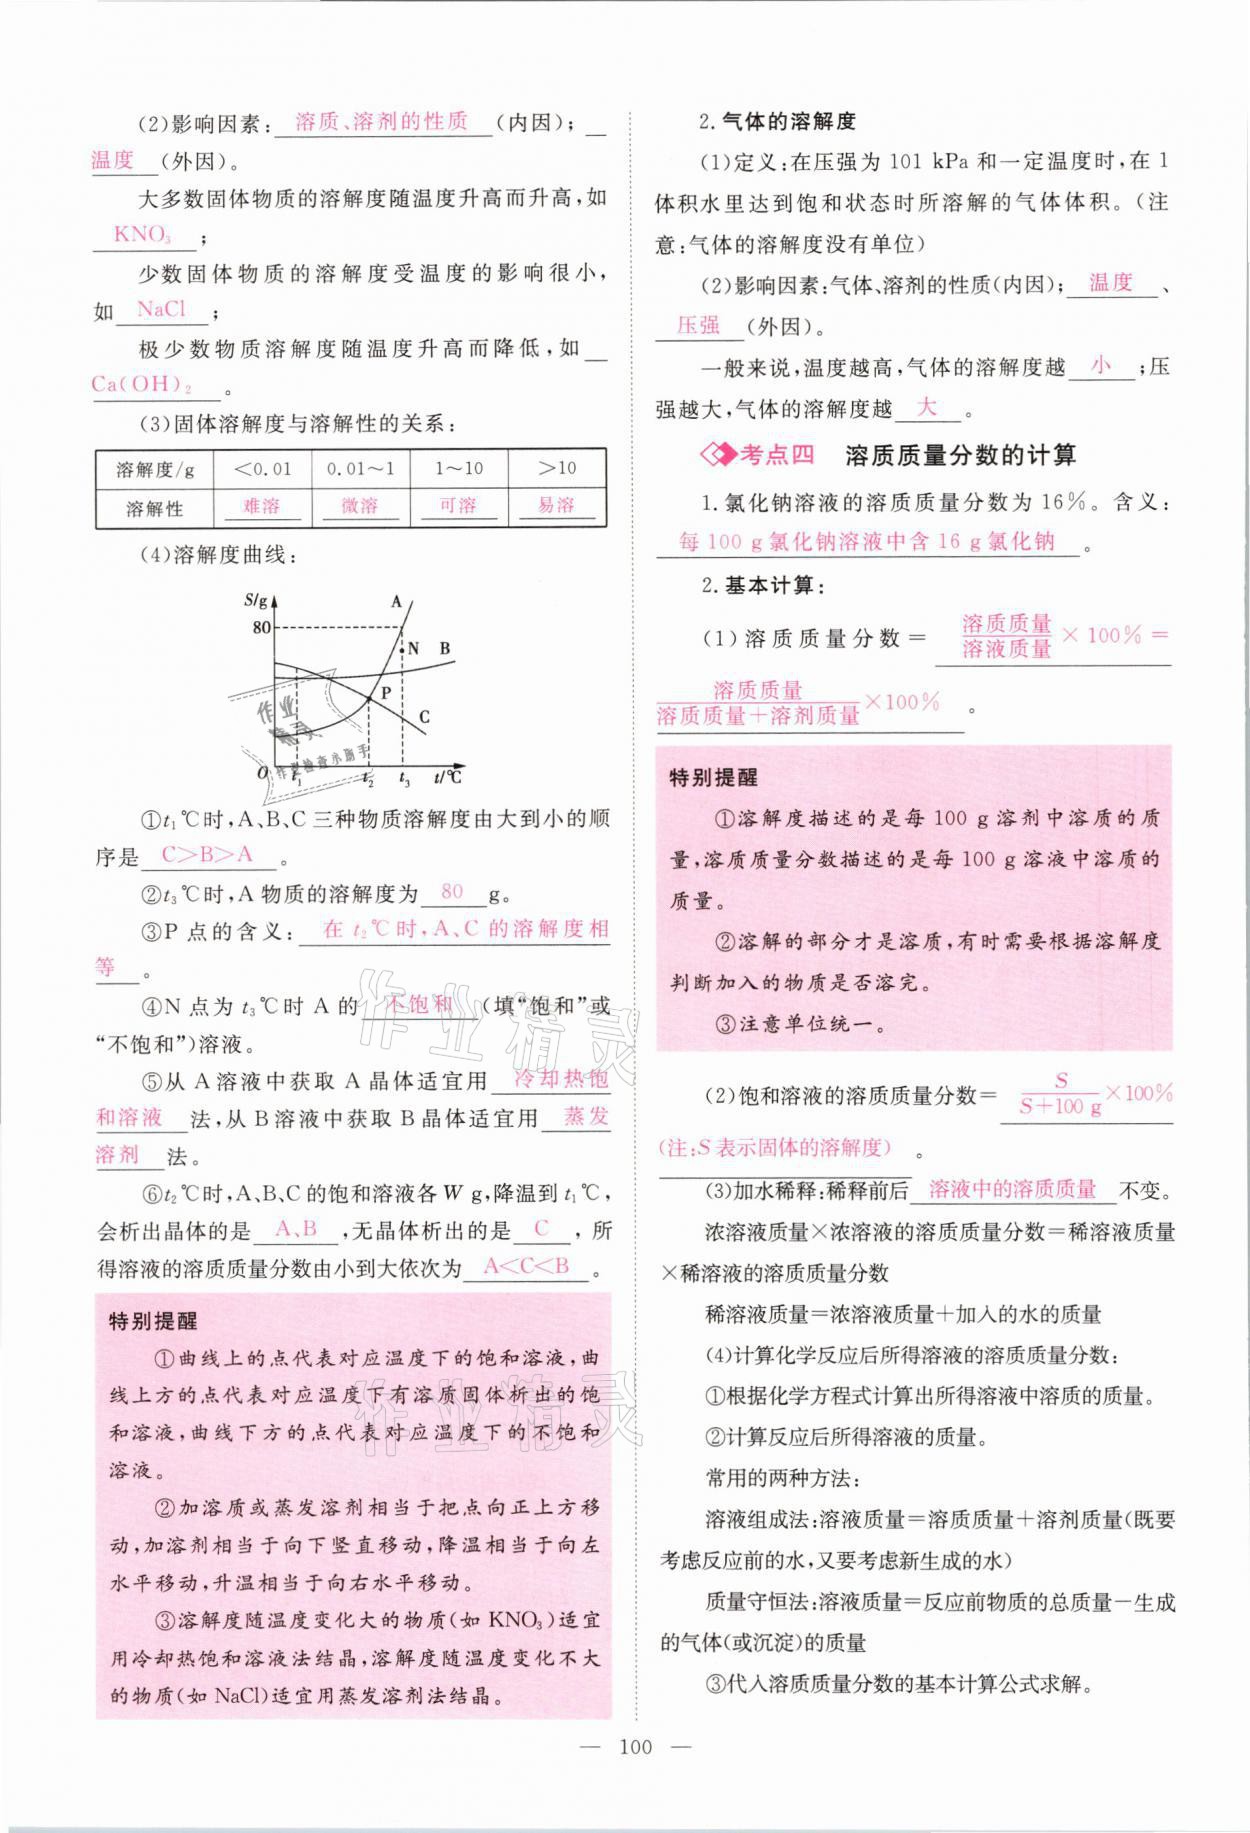 (2)影响因素:溶质、溶剂的性质(内因);
温度(外因)。
大多数固体物质的溶解度随温度升高而升高,如
KNO₃;
少数固体物质的溶解度受温度的影响很小,
如NaCl;
极少数物质溶解度随温度升高而降低,如
Ca(OH)₂。
(3)固体溶解度与溶解性的关系:
溶解度/g <0.01 0.01~1 1~10 >10
溶解性 难溶 微溶 可溶 易溶
(4)溶解度曲线:
S/g
80
A
N
B
P
C
O t₁ t₂ t₃ t/℃
①t₁℃时,A、B、C三种物质溶解度由大到小的顺
序是C>B>A。
②t₃℃时,A物质的溶解度为80g。
③P点的含义:在t₂℃时,A、C的溶解度相
等。
④N点为t₃℃时A的不饱和(填“饱和”或
“不饱和”)溶液。
⑤从A溶液中获取A晶体适宜用冷却热饱
和溶液法,从B溶液中获取B晶体适宜用蒸发
溶剂法。
⑥t₂℃时,A、B、C的饱和溶液各W g,降温到t₁℃,
会析出晶体的是A、B,无晶体析出的是C,所
得溶液的溶质质量分数由小到大依次为A<C<B。
特别提醒
①曲线上的点代表对应温度下的饱和溶液,曲
线上方的点代表对应温度下有溶质固体析出的饱
和溶液,曲线下方的点代表对应温度下的不饱和
溶液。
②加溶质或蒸发溶剂相当于把点向正上方移
动,加溶剂相当于向下竖直移动,降温相当于向左
水平移动,升温相当于向右水平移动。
③溶解度随温度变化大的物质(如KNO₃)适宜
用冷却热饱和溶液法结晶,溶解度随温度变化不大
的物质(如NaCl)适宜用蒸发溶剂法结晶。
2.气体的溶解度
(1)定义:在压强为101 kPa和一定温度时,在1
体积水里达到饱和状态时所溶解的气体体积。(注
意:气体的溶解度没有单位)
(2)影响因素:气体、溶剂的性质(内因);温度、
压强(外因)。
一般来说,温度越高,气体的溶解度越小;压
强越大,气体的溶解度越大。
考点四 溶质质量分数的计算
1.氯化钠溶液的溶质质量分数为16%。含义:
每100 g氯化钠溶液中含16 g氯化钠。
2.基本计算:
(1)溶质质量分数=溶质质量/溶液质量×100%=
溶质质量/溶质质量+溶剂质量×100%。
特别提醒
①溶解度描述的是每100 g溶剂中溶质的质
量,溶质质量分数描述的是每100 g溶液中溶质的
质量。
②溶解的部分才是溶质,有时需要根据溶解度
判断加入的物质是否溶完。
③注意单位统一。
(2)饱和溶液的溶质质量分数=S/S+100 g×100%
(注:S表示固体的溶解度)。
(3)加水稀释:稀释前后溶液中的溶质质量不变。
浓溶液质量×浓溶液的溶质质量分数=稀溶液质量
×稀溶液的溶质质量分数
稀溶液质量=浓溶液质量+加入的水的质量
(4)计算化学反应后所得溶液的溶质质量分数:
①根据化学方程式计算出所得溶液中溶质的质量。
②计算反应后所得溶液的质量。
常用的两种方法:
溶液组成法:溶液质量=溶质质量+溶剂质量(既要
考虑反应前的水,又要考虑新生成的水)
质量守恒法:溶液质量=反应前物质的总质量-生成
的气体(或沉淀)的质量
③代入溶质质量分数的基本计算公式求解。
— 100 —
作业精灵
作业检查小助手
作业精灵
作业精灵